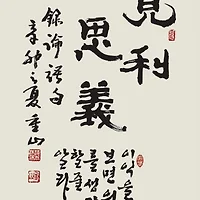 見利
思義
이익을
보면의
를생각
할줄
알라
錄論語句
辛卯之夏重山